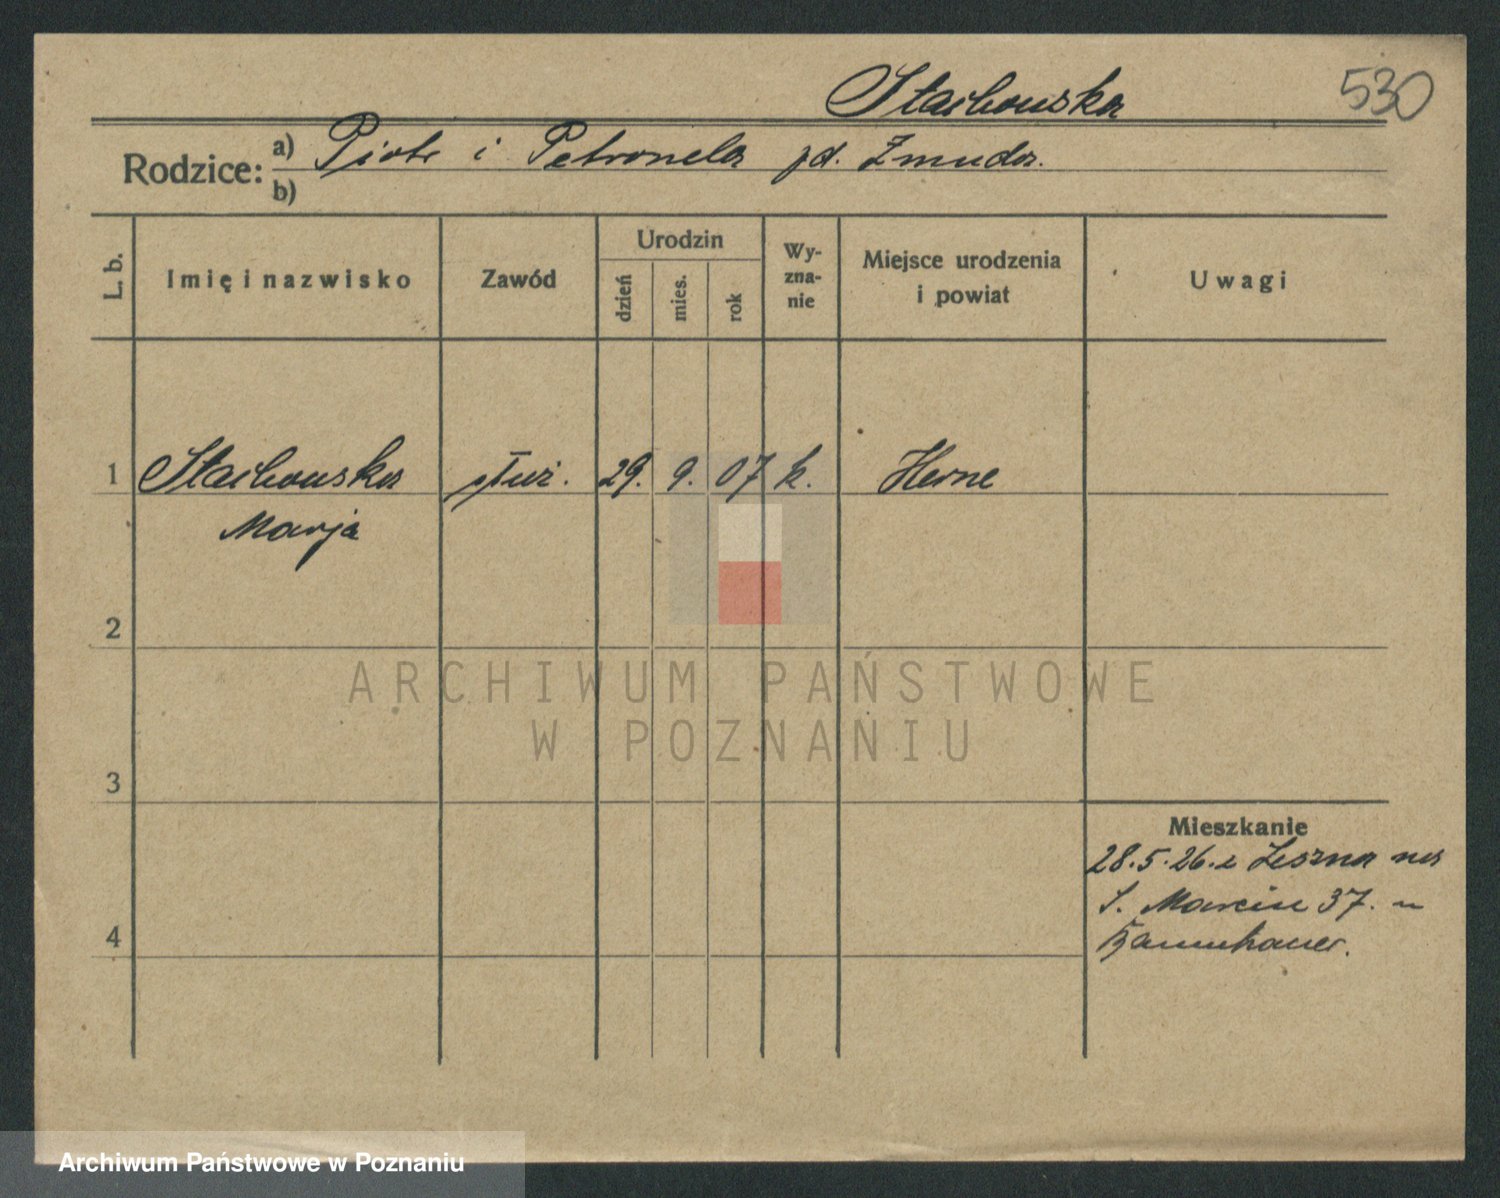 Stachowska
530
Rodzice: a) Piotr i Petronela zd. Żmuda.
b)
L. b.
Imię i nazwisko
Zawód
Urodzin
dzień
mies.
rok
Wy-
zna-
nie
Miejsce urodzenia
i powiat
Uwagi
1 Stachowska służ. 29. 9. 07 k. Herne
Marja
2
ARCHIWUM PAŃSTWOWE
W POZNANIU
3
Mieszkanie
28.5.26. z Leszna na
S. Marcin 37. u
4
Archiwum Państwowe w Poznaniu